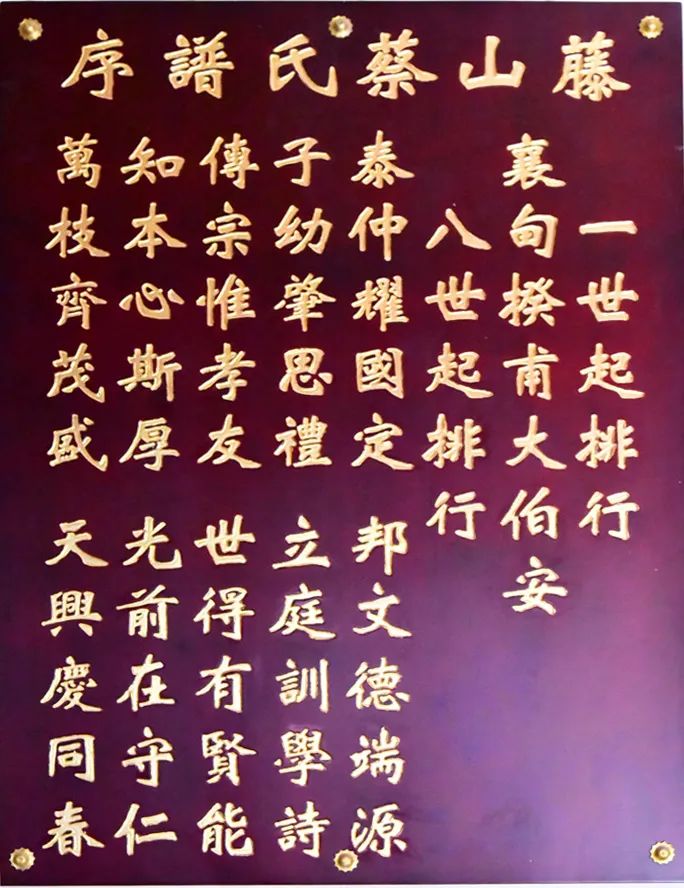 藤山蔡氏譜序
一世起排行
襄甸揆甫大伯安
八世起排行
泰仲耀國定 邦文德端源
子幼肇思禮 立庭訓學詩
傳宗惟孝友 世得有賢能
知本心斯厚 光前在守仁
萬枝齊茂盛 天興慶同春